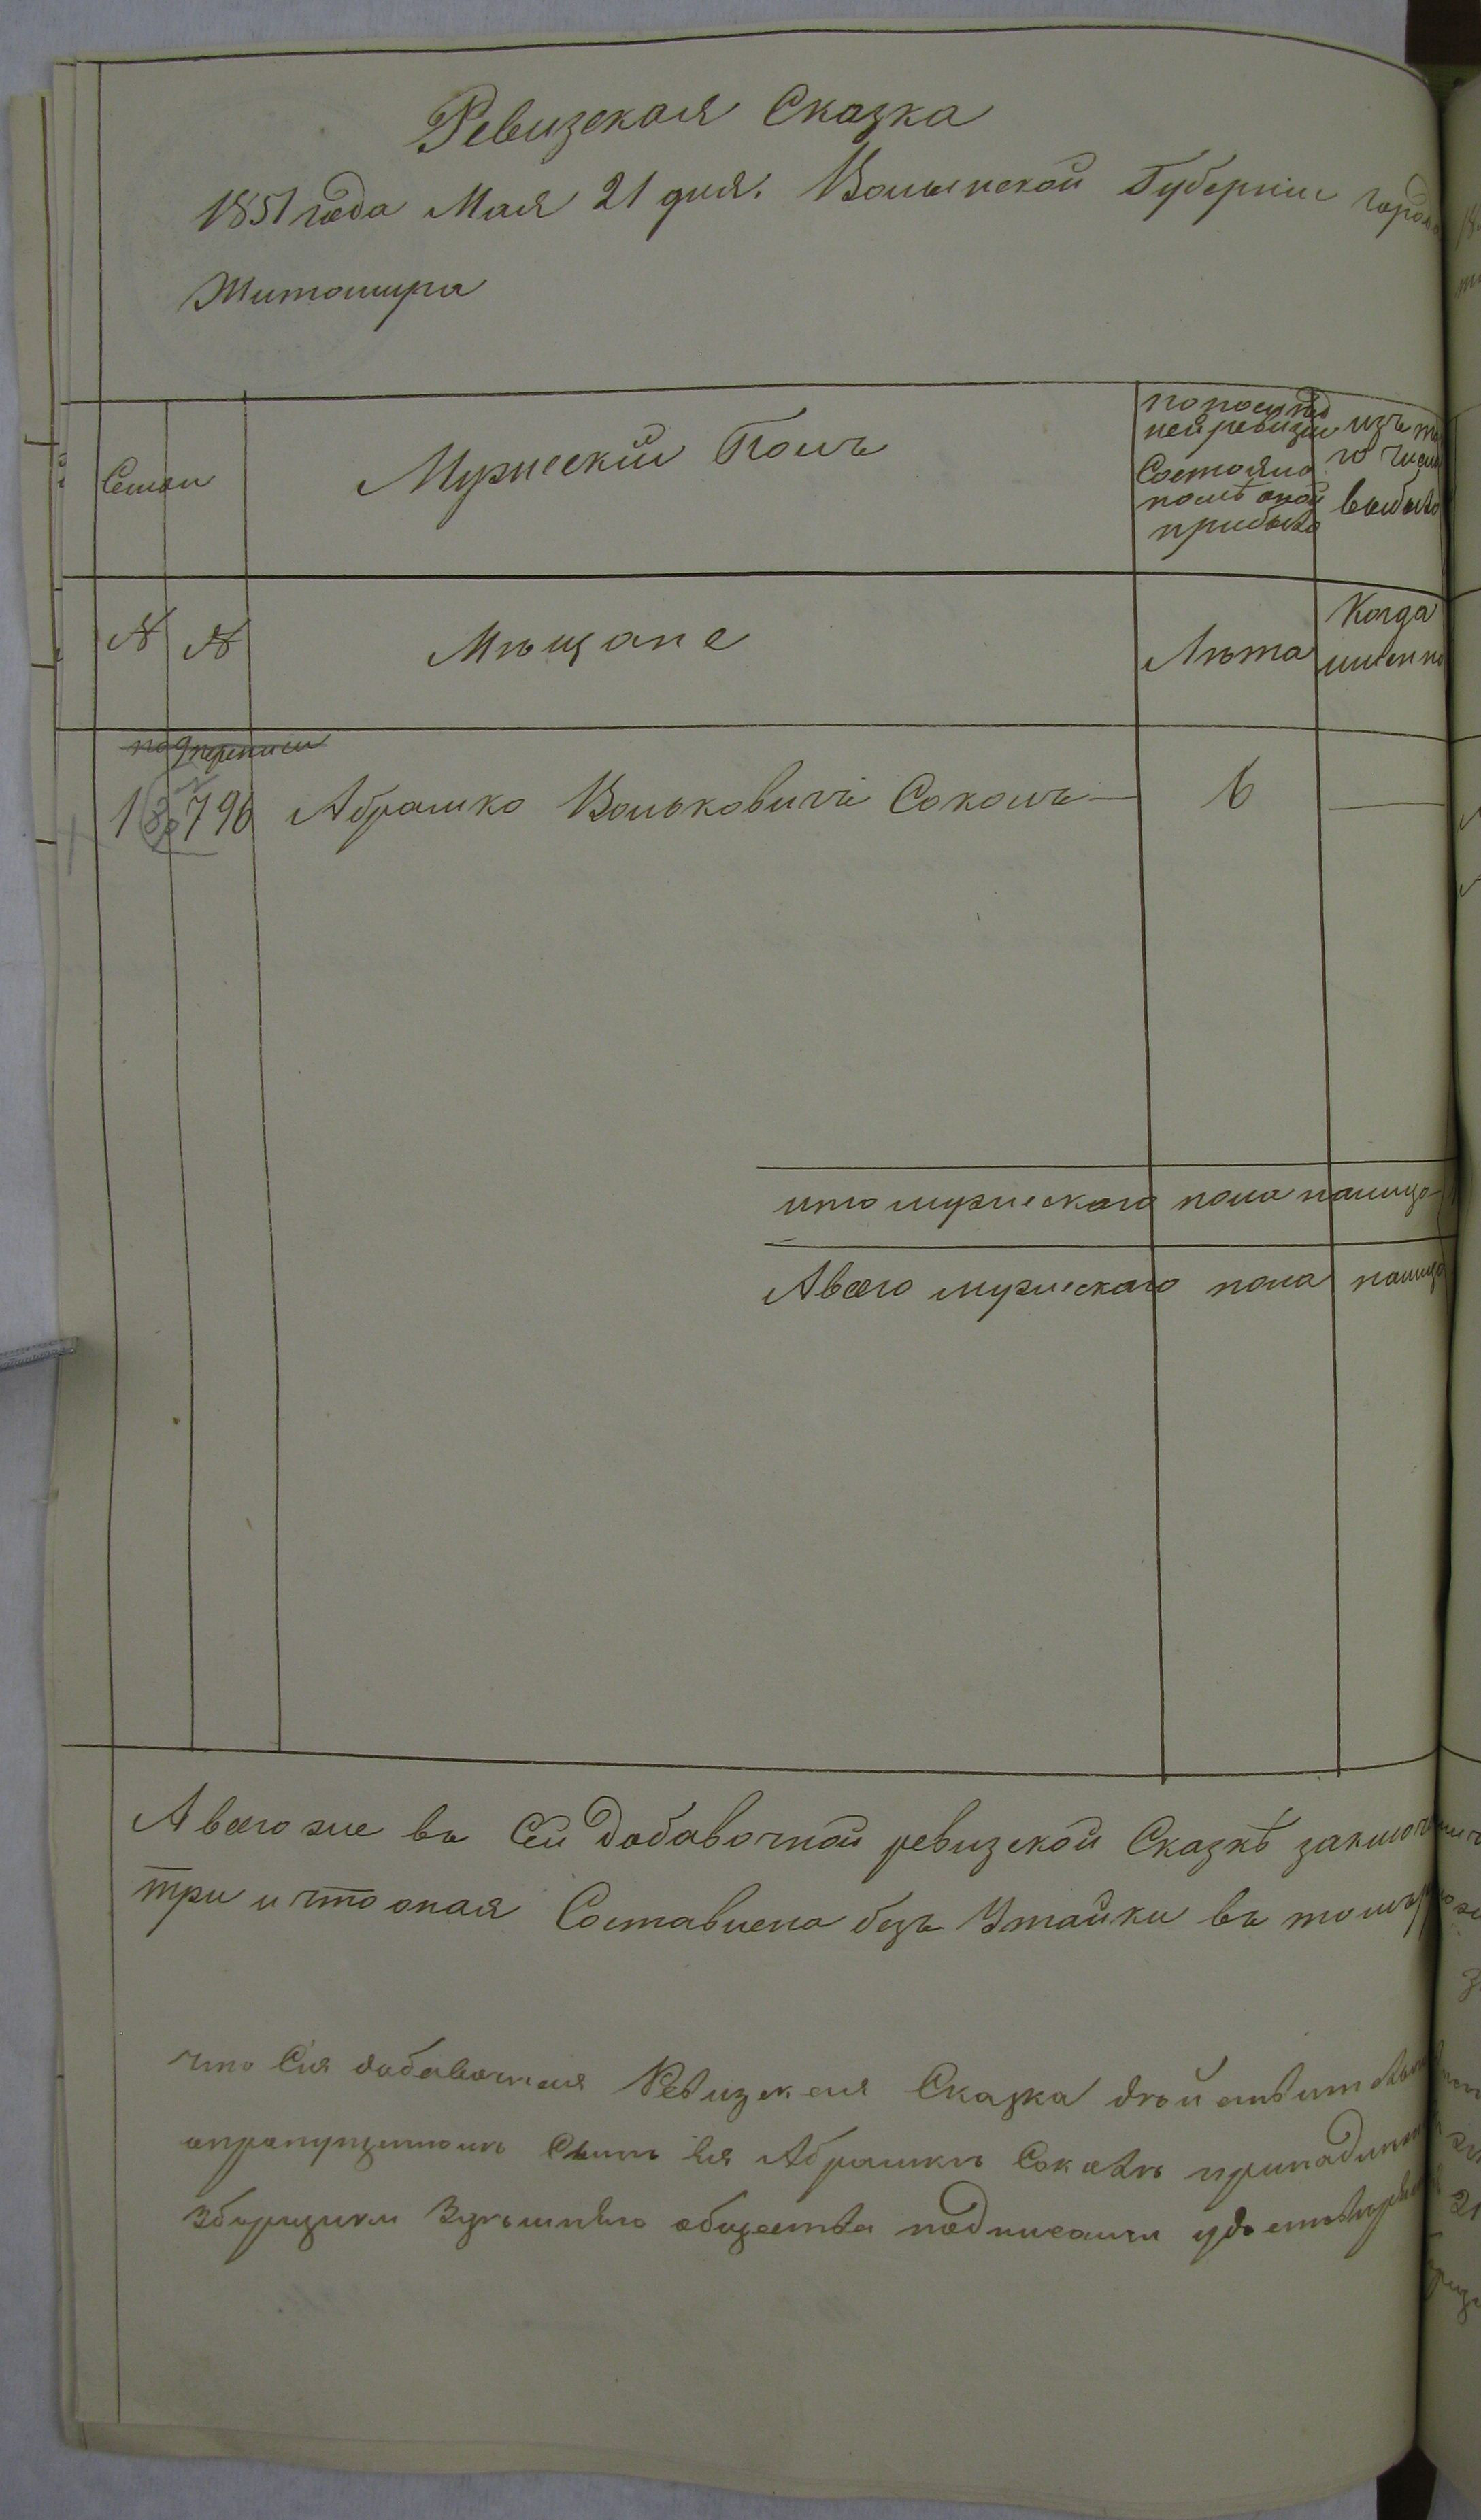 Ревизская Сказка
1851 года Мая 21 дня. Волынской Губерніи города
Житомира
Семьи
Мужескій Полъ
по послѣд
ней ревизіи
Состояло
послѣ оной
прибыло
изъ то
го числа
выбыло
№ №
Мѣщане
Лѣта
Когда
именно
1 796 Абрамко Вольковичъ Соколъ — 6 —
итого мужескаго пола налицо
А всего мужескаго пола налицо
А всего же въ Сей добавочной ревизской Сказкѣ заключ
три и что оная Составлена безъ Утайки въ томъ
что Сія добавочная Ревизская Сказка
Абрамкѣ
Здѣшняго общества подписали